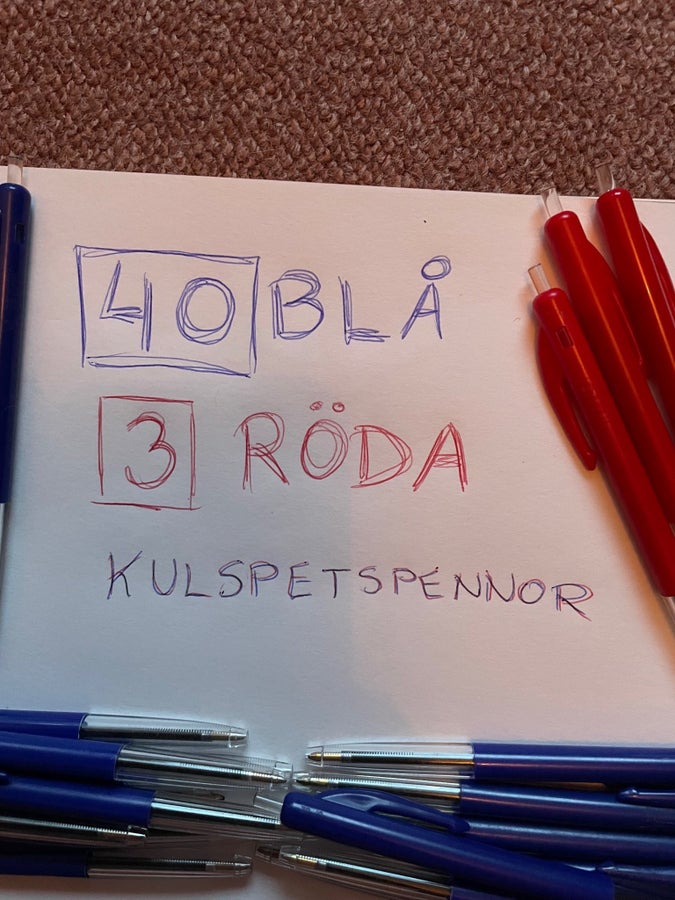 40 BLÅ
3 RÖDA
KULSPETSPENNOR